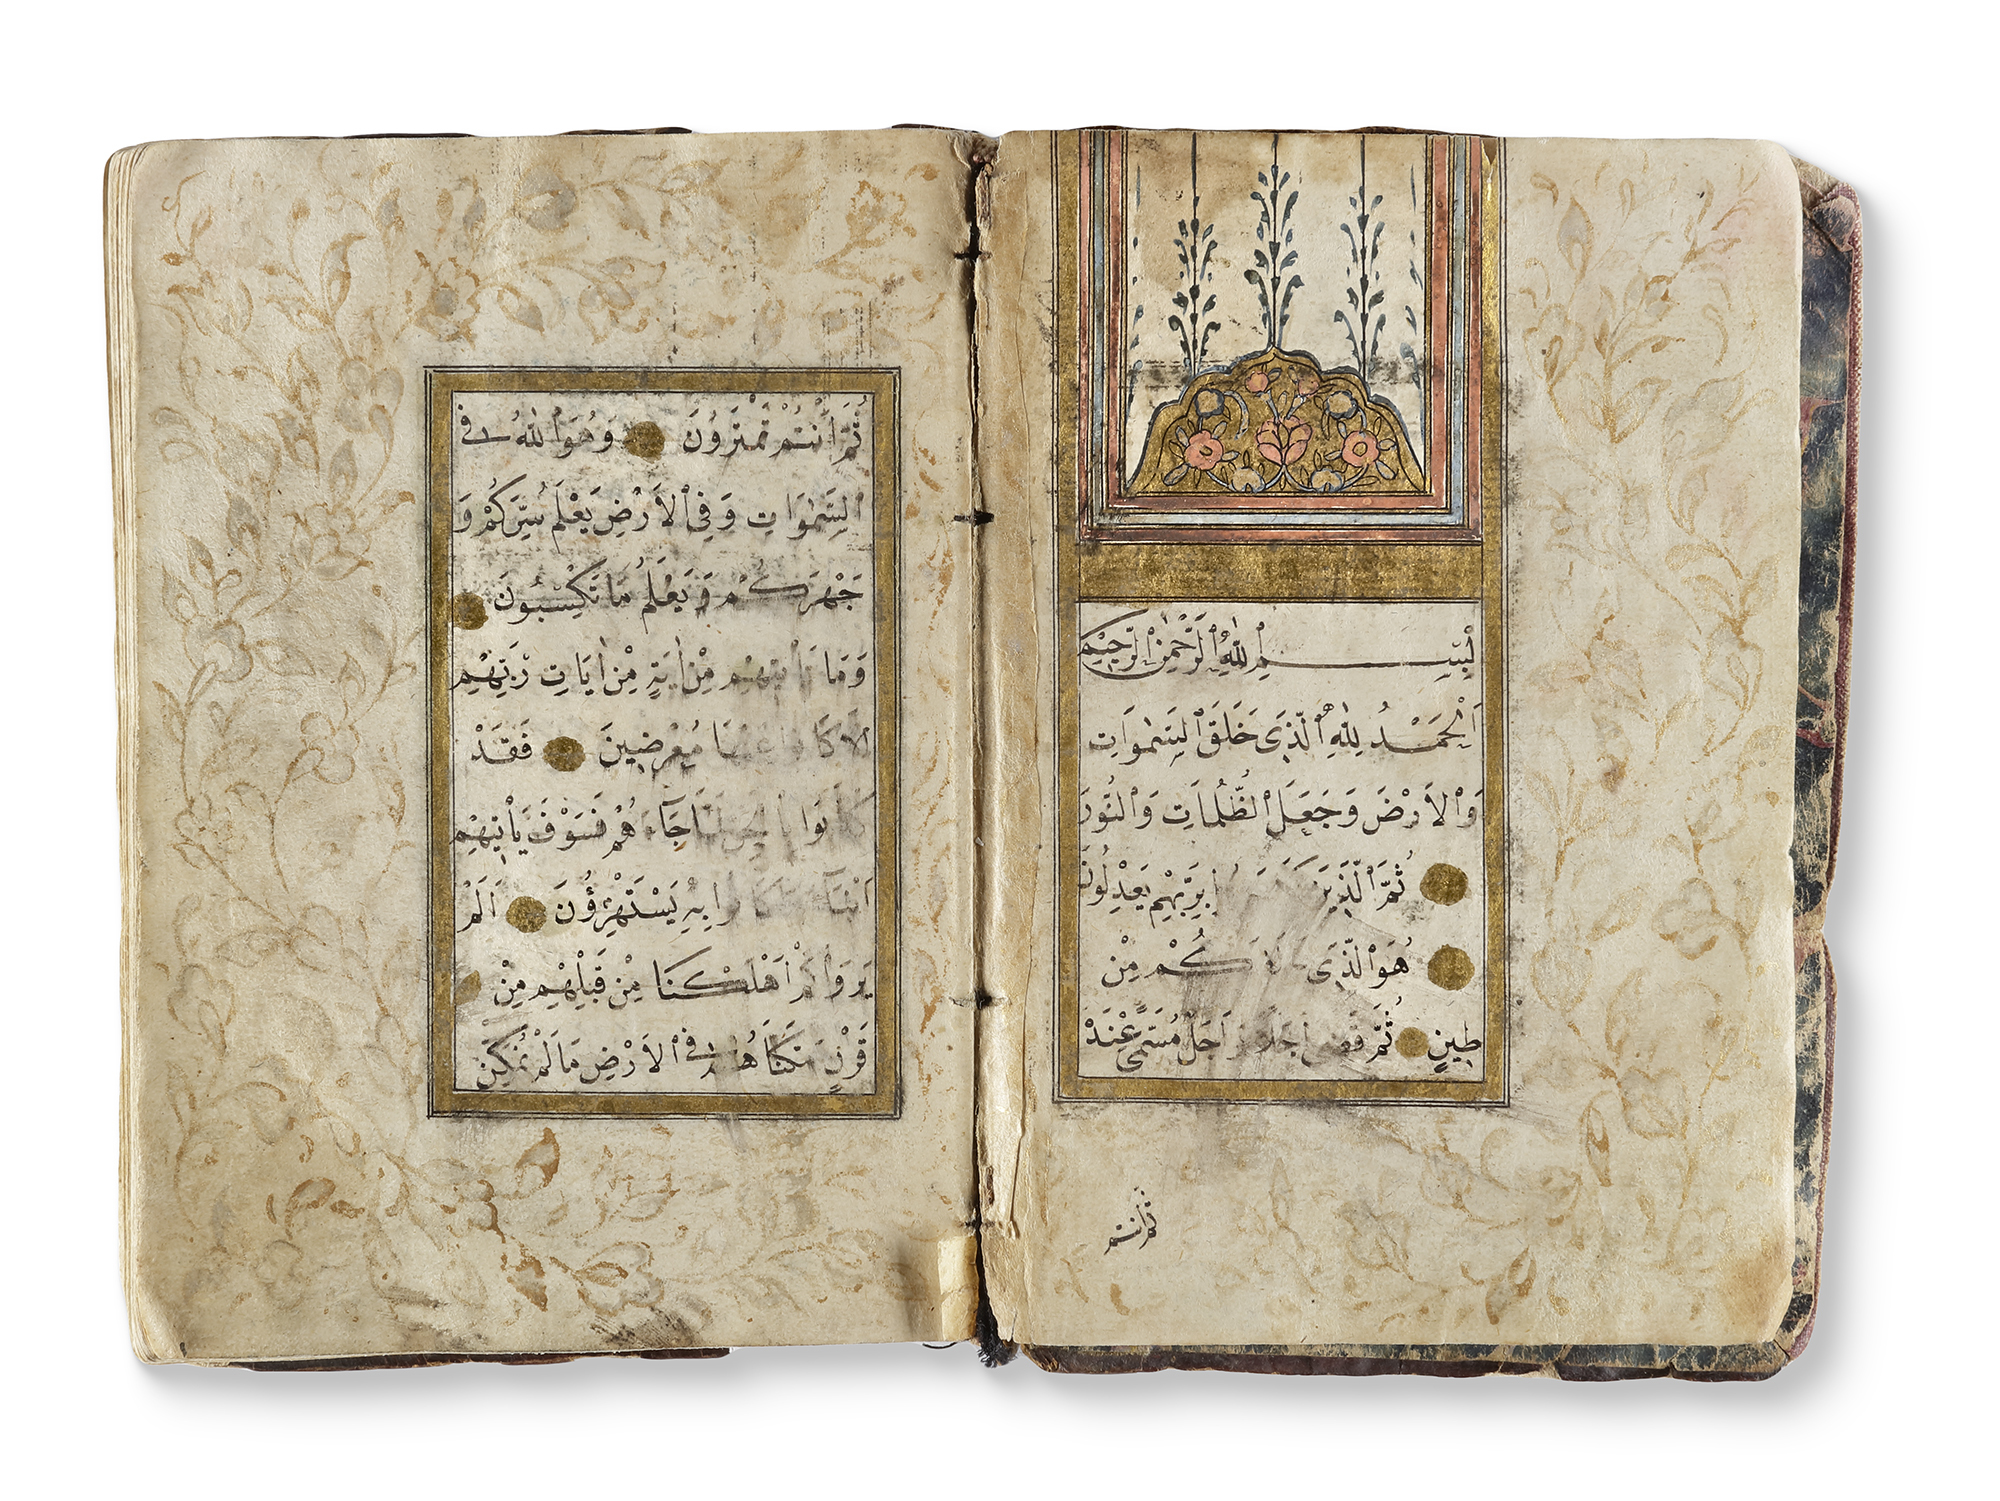 بِسْمِ ٱللهِ ٱلرَّحْمٰنِ ٱلرَّحِيمِ
اَلْحَمْدُ لِلّٰهِ ٱلَّذِى خَلَقَ ٱلسَّمٰوَاتِ
وَٱلْاَرْضَ وَجَعَلَ ٱلظُّلُمَاتِ وَالنُّورَ
ثُمَّ ٱلَّذِينَ بِرَبِّهِمْ يَعْدِلُونَ
هُوَ ٱلَّذِى كُمْ مِنْ
طِينٍ ثُمَّ قَضٰى اَجَلًا اَجَلٌ مُسَمًّى عِنْدَ
ثم انتم
ثُمَّ اَنْتُمْ تَمْتَرُونَ وَهُوَ ٱللهُ فِى
ٱلسَّمٰوَاتِ وَفِى ٱلْاَرْضِ يَعْلَمُ سِرَّكُمْ وَ
جَهْرَكُمْ وَيَعْلَمُ مَا تَكْسِبُونَ
وَمَا تَأْتِيهِمْ مِنْ اٰيَةٍ مِنْ اٰيَاتِ رَبِّهِمْ
اِلَّا كَانُوا عَنْهَا مُعْرِضِينَ فَقَدْ
جَآءَهُمْ فَسَوْفَ يَأْتِيهِمْ
بِهِ يَسْتَهْزِؤُنَ اَلَمْ
يَرَوْا كَمْ اَهْلَكْنَا مِنْ قَبْلِهِمْ مِنْ
قَرْنٍ مَكَّنَّاهُمْ فِى ٱلْاَرْضِ مَالَمْ نُمَكِّنْ